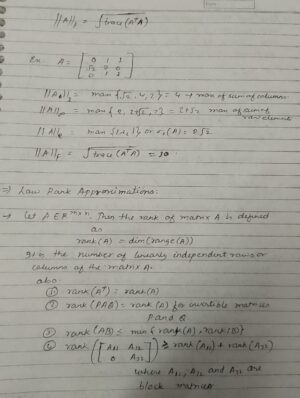 ||A||_F = √trace(AᵀA)
Ex. A = [ 0 1 1
√2 2 0
0 1 1 ]
||A||₁ = max {√2, 4, 2} = 4 → max of sum of columns
||A||∞ = max { 2, 2+√2, 2} = 2+√2 max of sum of row element
||A||₂ = max { } or σ₁(A) = 2√2
||A||_F = √trace(AᵀA) = 10
⇒ Low Rank Approximations:
→ Let A ∈ F^{m×n}. Then the rank of matrix A is defined
as
rank(A) = dim(range(A))
is the number of linearly independent rows or
columns of the matrix A.
also
① rank(Aᵀ) = rank(A)
② rank(PAQ) = rank(A) for invertible matrices
P and Q
③ rank(AB) ≤ min{rank(A), rank(B)}
④ rank([ A₁₁ A₁₂
0 A₂₂ ]) ≥ rank(A₁₁) + rank(A₂₂)
where A₁₁, A₁₂ and A₂₂ are
block matrices